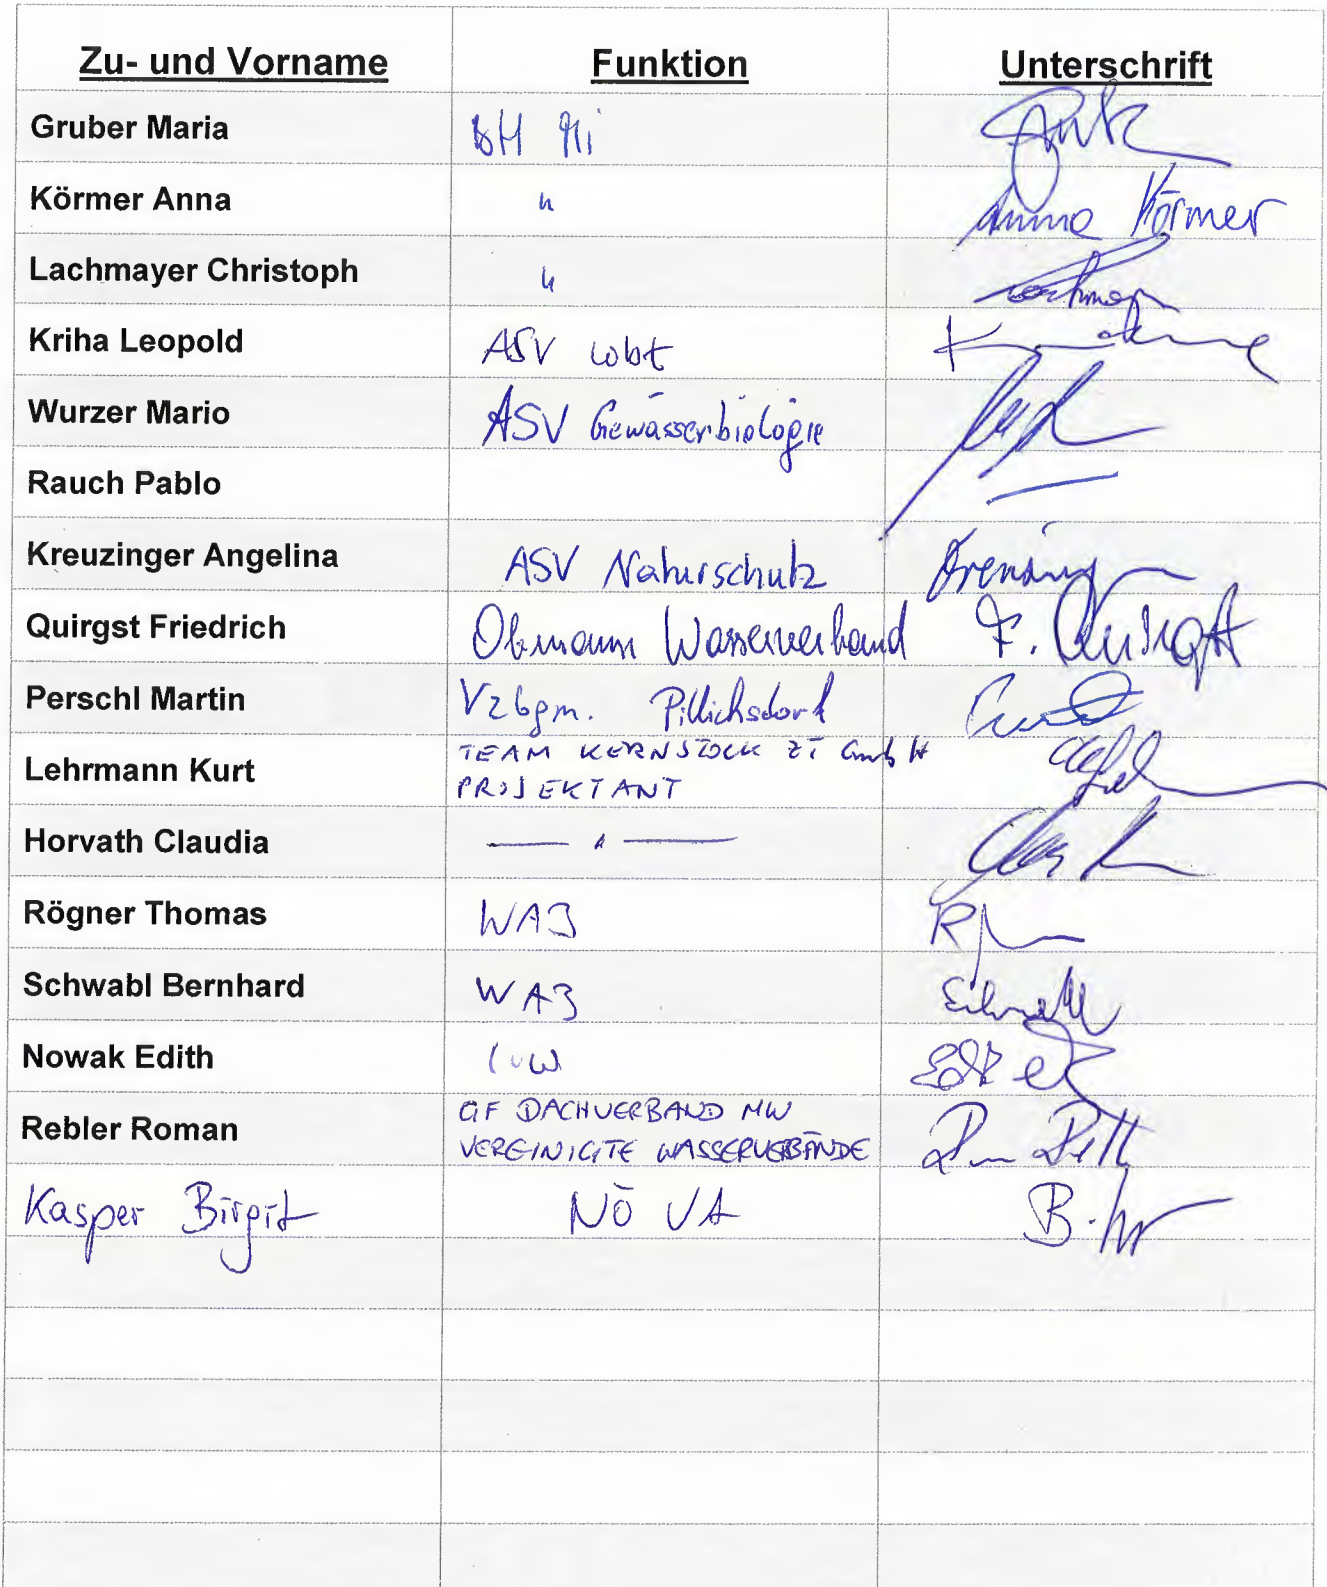 Zu- und Vorname Funktion Unterschrift
Gruber Maria BH Mi
Körmer Anna " Anna Körmer
Lachmayer Christoph "
Kriha Leopold ASV wbt
Wurzer Mario ASV Gewässerbiologie
Rauch Pablo —
Kreuzinger Angelina ASV Naturschutz
Quirgst Friedrich Obmann Wasserverband F. Quirgst
Perschl Martin Vzbgm. Pillichsdorf
Lehrmann Kurt TEAM KERNSTOCK ZT GmbH
PROJEKTANT
Horvath Claudia — " —
Rögner Thomas WA3
Schwabl Bernhard WA3
Nowak Edith
Rebler Roman GF DACHVERBAND MW
VEREINIGTE WASSERVERBÄNDE
Kasper Birgit NÖ VA